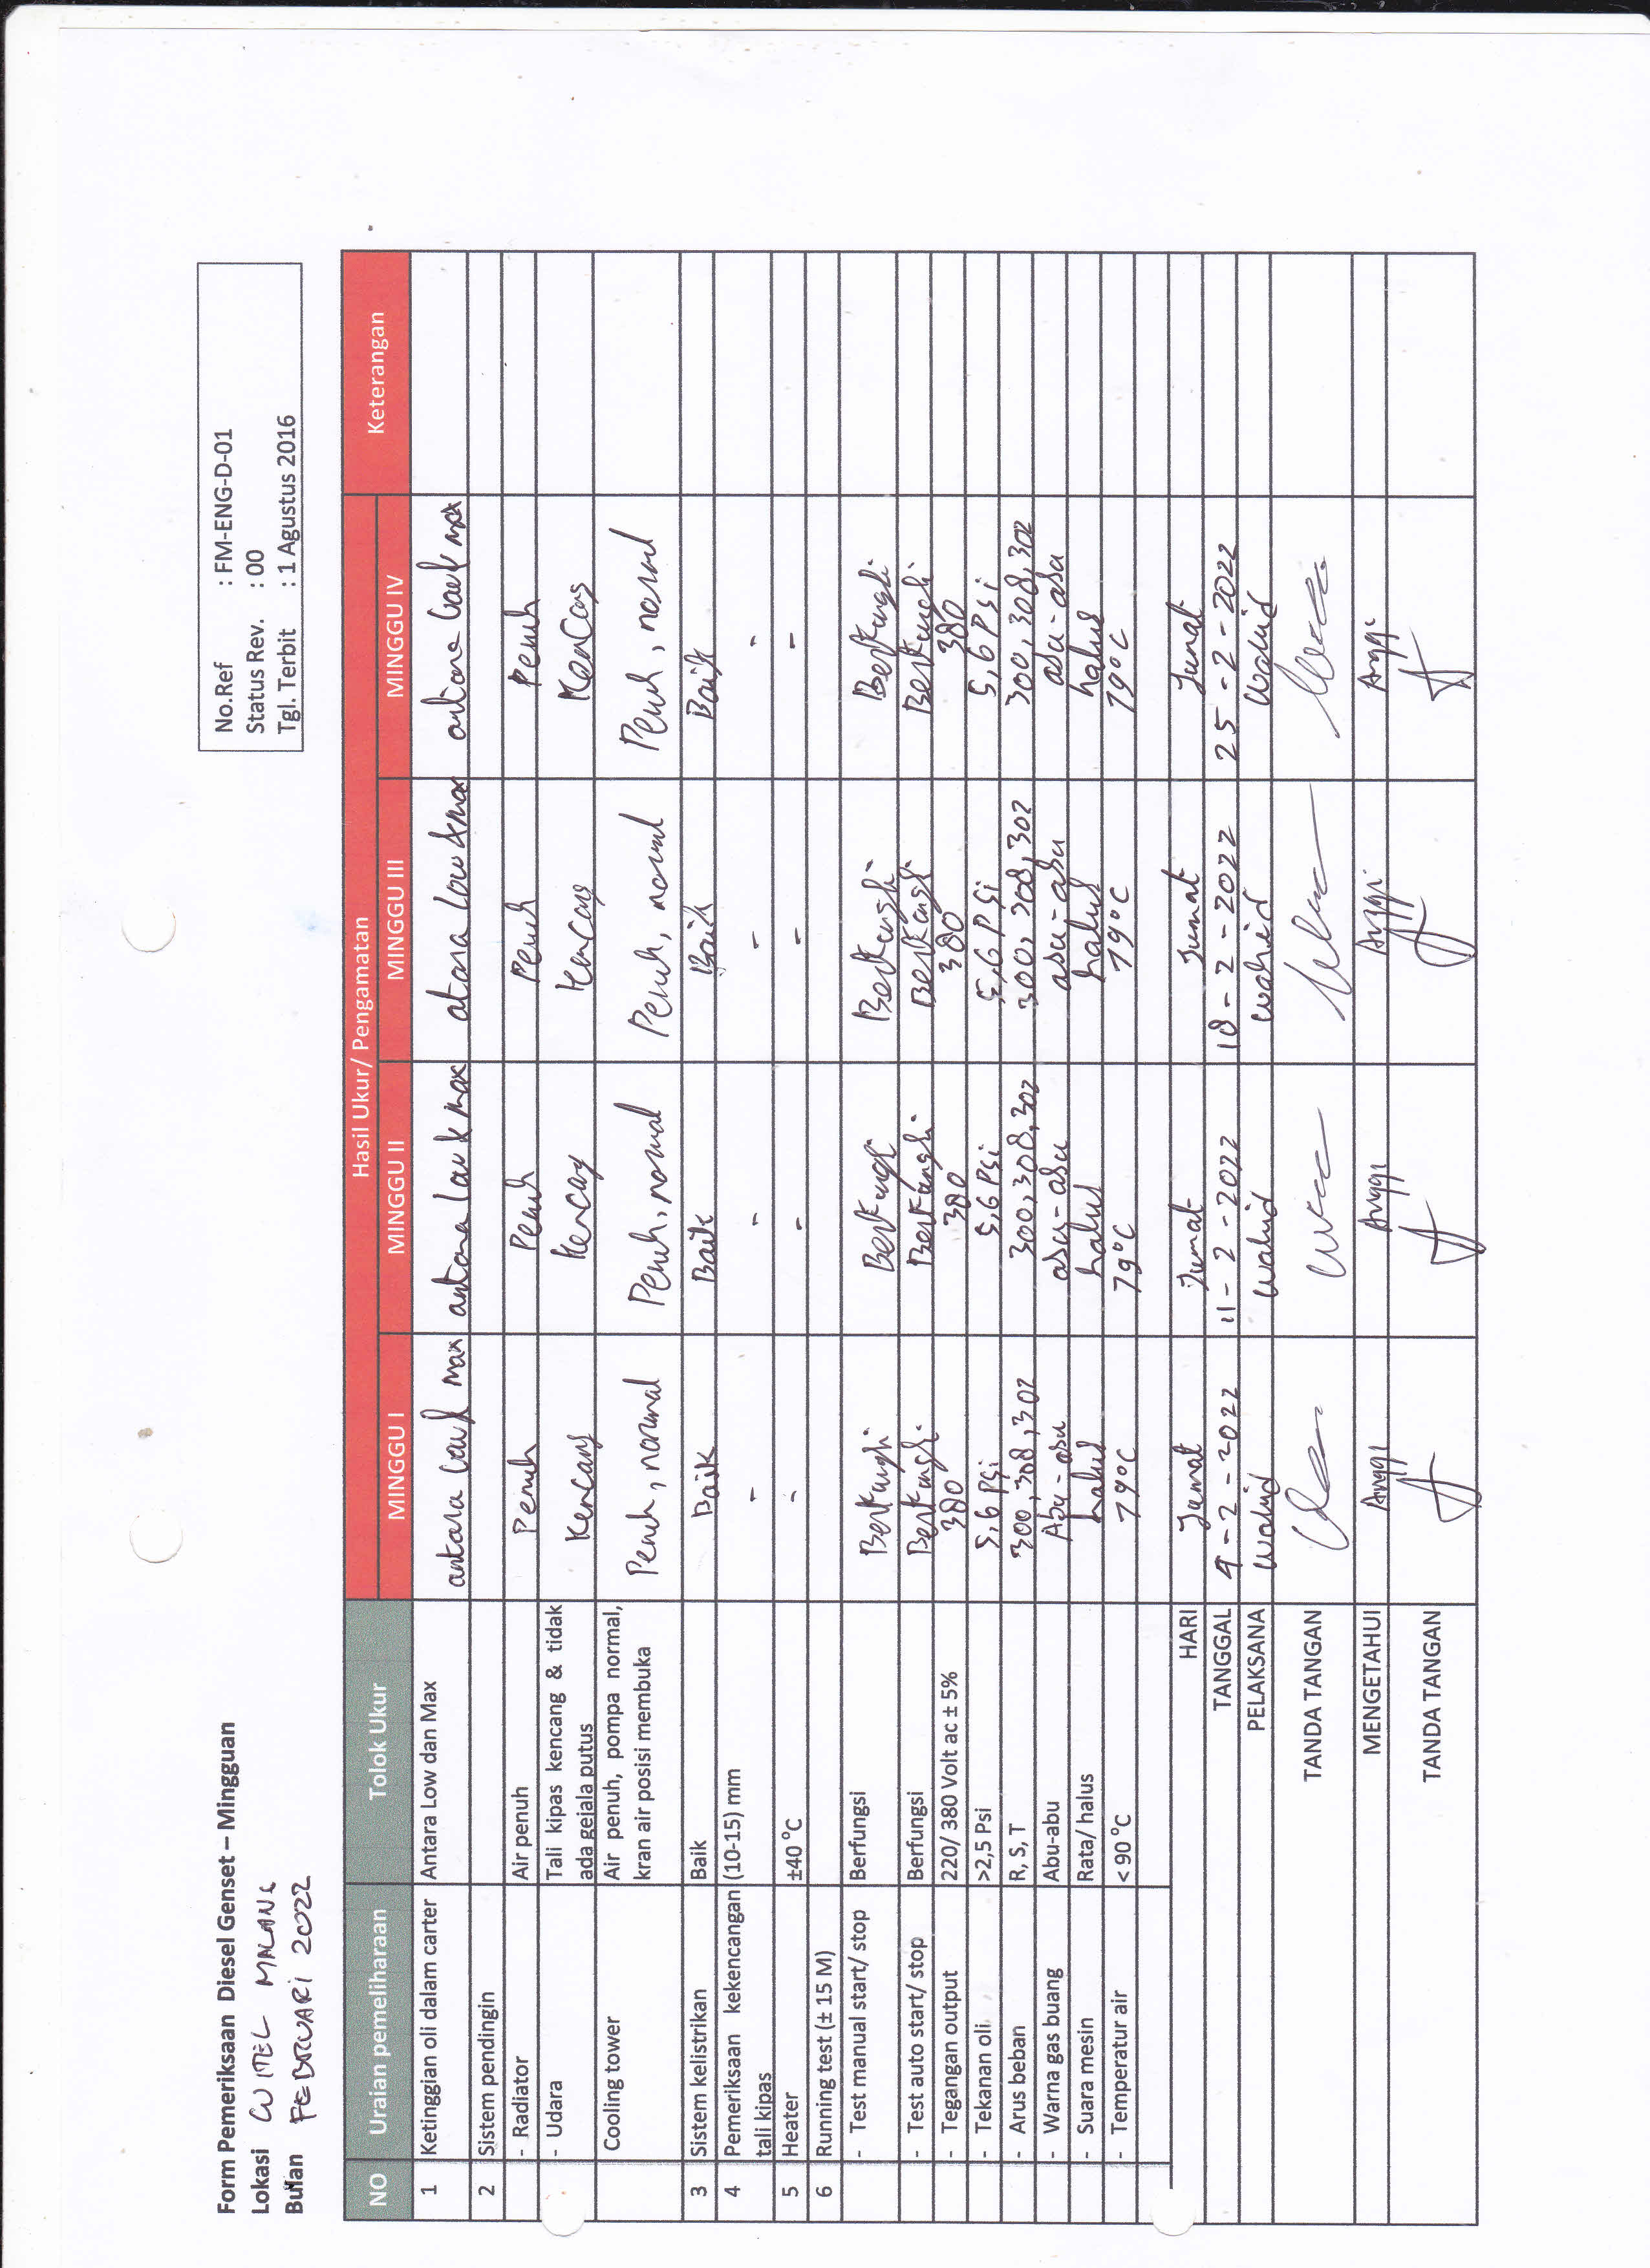 Form Pemeriksaan Diesel Genset – Mingguan
Lokasi WITEL MALANG
Bulan FEBRUARI 2022
No.Ref : FM-ENG-D-01
Status Rev. : 00
Tgl. Terbit : 1 Agustus 2016
NO Uraian pemeliharaan Tolok Ukur Hasil Ukur/ Pengamatan Keterangan
MINGGU I MINGGU II MINGGU III MINGGU IV
1 Ketinggian oli dalam carter Antara Low dan Max antara low & max antara low & max atara low & max antara low & max
2 Sistem pendingin
- Radiator Air penuh Penuh Penuh Penuh Penuh
- Udara Tali kipas kencang & tidak
ada gejala putus Kencang Kencang Kencang Kencang
Cooling tower Air penuh, pompa normal,
kran air posisi membuka Penuh, normal Penuh, normal Penuh, normal Penuh, normal
3 Sistem kelistrikan Baik Baik Baik Baik Baik
4 Pemeriksaan kekencangan (10-15) mm
tali kipas - - - -
5 Heater ±40 °C - - - -
6 Running test (± 15 M)
- Test manual start/ stop Berfungsi Berfungsi Berfungsi Berfungsi Berfungsi
- Test auto start/ stop Berfungsi Berfungsi Berfungsi Berfungsi Berfungsi
- Tegangan output 220/ 380 Volt ac ± 5% 380 380 380 380
- Tekanan oli >2,5 Psi 5,6 Psi 5,6 Psi 5,6 PSi 5,6 Psi
- Arus beban R, S, T 300, 308, 302 300, 308, 302 300, 308, 302 300, 308, 302
- Warna gas buang Abu-abu Abu-abu abu-abu abu-abu abu-abu
- Suara mesin Rata/ halus halus halus halus halus
- Temperatur air < 90 °C 79°C 79°C 79°C 79°C
HARI Jumat Jumat Jumat Jumat
TANGGAL 4-2-2022 11-2-2022 18-2-2022 25-2-2022
PELAKSANA Wahid Wahid Wahid Wahid
TANDA TANGAN
MENGETAHUI Anggi Anggi Anggi Anggi
TANDA TANGAN